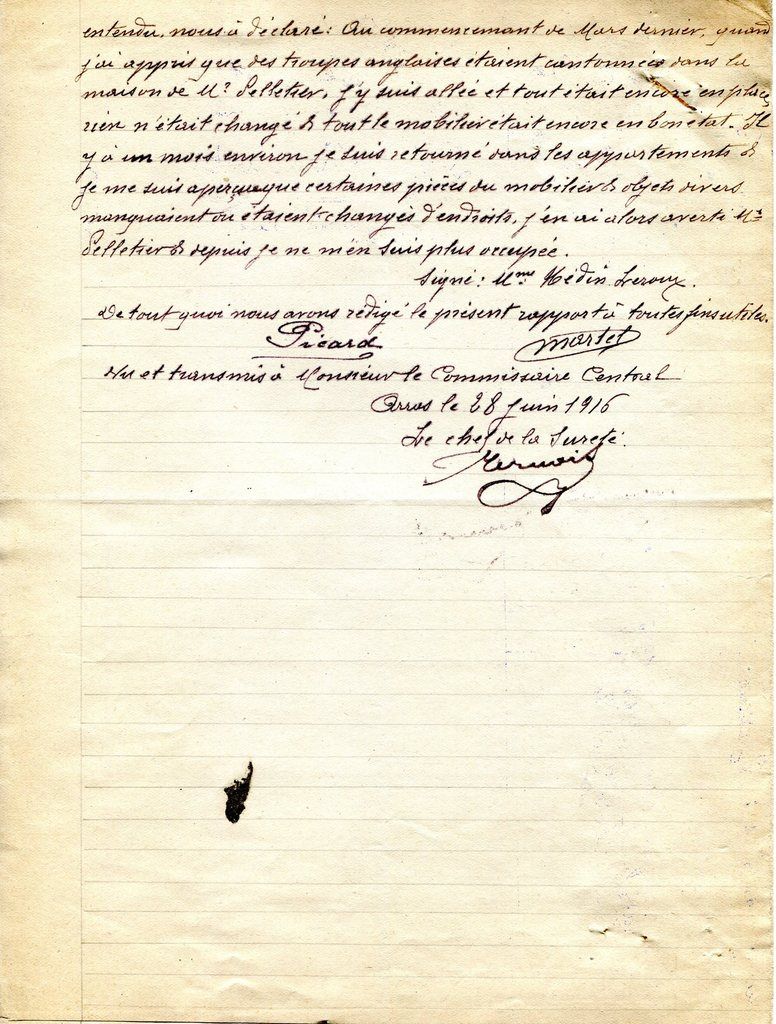 entendu, nous à déclaré: Au commencemant de Mars dernier, quand
j'ai appris que des troupes anglaises étaient cantonnées dans la
maison de Mr Pelletier, j'y suis allée et tout était encore en place,
rien n'était changé & tout le mobilier était encore en bon état. Il
y à un mois environ je suis retourné dans les appartements &
je me suis aperçue que certaines pièces du mobilier & objets divers
manquaient ou étaient changés d'endroits, j'en ai alors averti Mr
Pelletier & depuis je ne m'en suis plus occupée.
Signé: Mme Hédin Leroux.
De tout quoi nous avons rédigé le présent rapport à toutes fins utiles.
Picard Martel
Vu et transmis à Monsieur le Commissaire Central
Arras le 28 Juin 1916
Le chef de la Sureté.